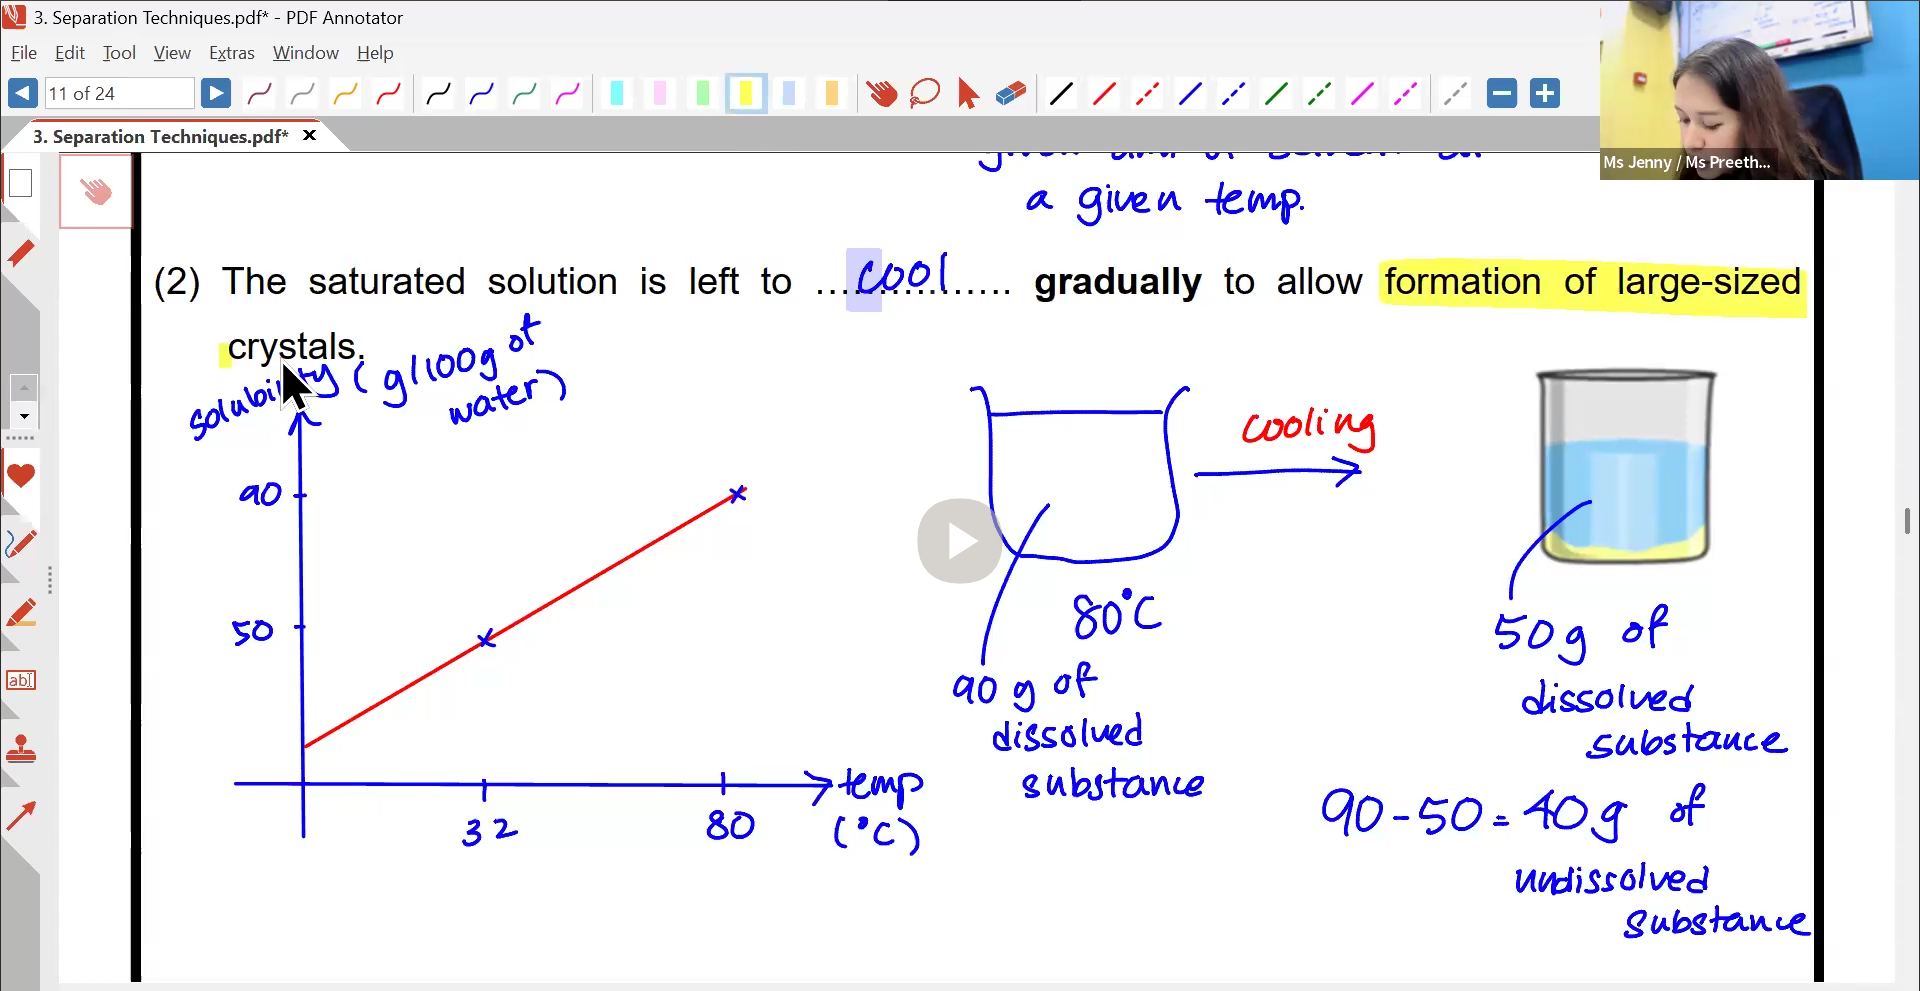 3. Separation Techniques.pdf* - PDF Annotator
File Edit Tool View Extras Window Help
11 of 24
3. Separation Techniques.pdf*
Ms Jenny / Ms Preeth...
a given temp.
(2) The saturated solution is left to ... cool ... gradually to allow formation of large-sized
crystals.
solubility (g/100g of
water)
90
50
32
80
temp
(°C)
80°C
90 g of
dissolved
substance
cooling
50g of
dissolved
substance
90-50=40g of
undissolved
substance
ab